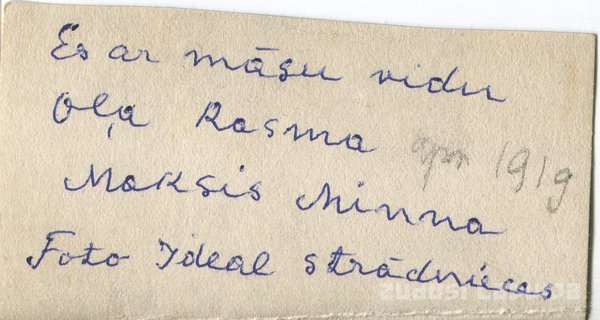 Es ar māsu vidu
Oļa Rasma
apm 1919
Maksis Minna
Foto Ideal strādnieces